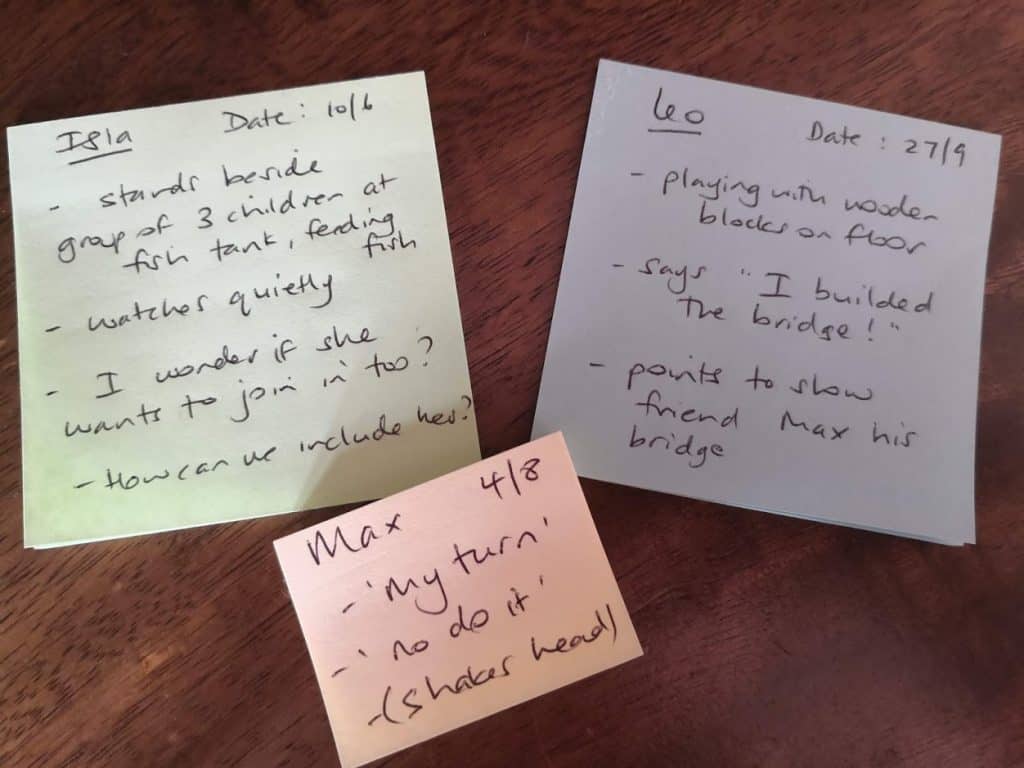 Isla Date: 10/6
- stands beside
group of 3 children at
fish tank, feeding
fish
- watches quietly
- I wonder if she
wants to join in too?
- How can we include her?
Leo Date: 27/9
- playing with wooden
blocks on floor
- says "I builded
the bridge!"
- points to show
friend Max his
bridge
Max 4/8
- 'My turn'
- 'no do it'
- (shakes head)